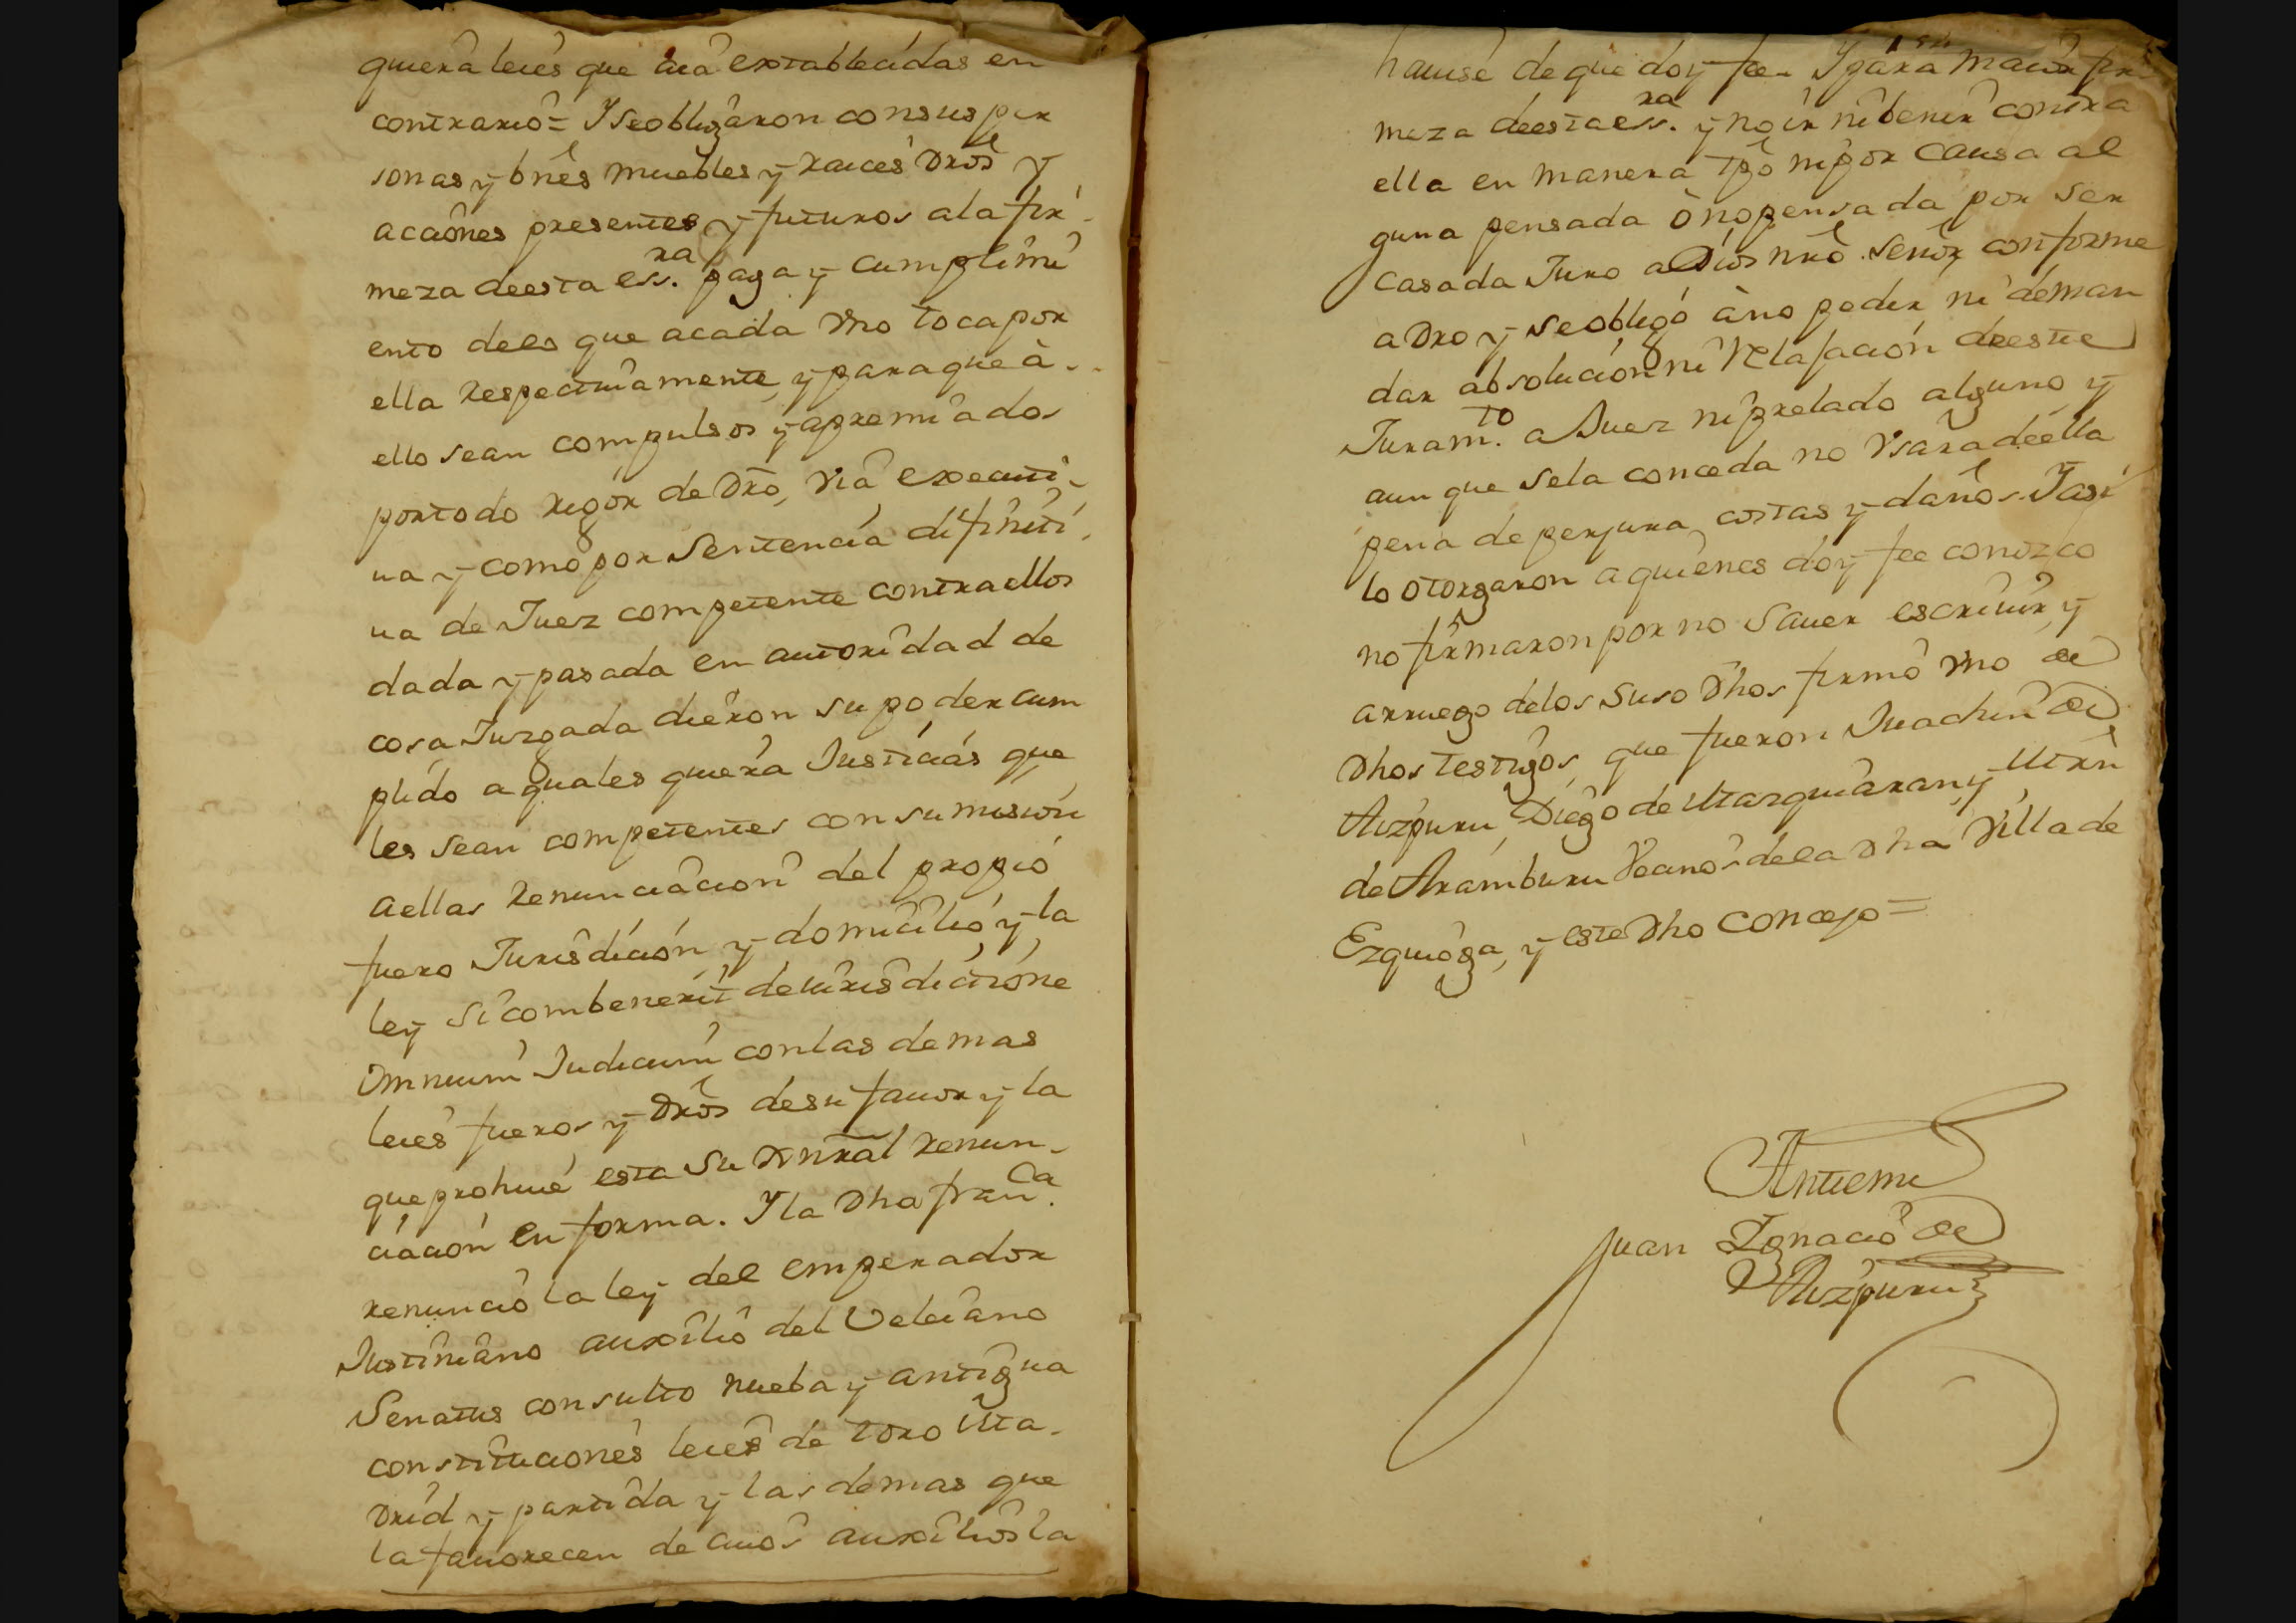 quiera leies que aia extablecidas en
contrario = Y se obligaron con sus per
sonas y bnẽs muebles y raices drõs y
acciones presentes y futuros a la fir-
meza de esta ess.ra paga y cumplimi
ento de lo que a cada vno toca por
ella respectiuamente, y para que à
ello sean compulsos y apremiados
por todo rigor de dró, via executi-
ua y como por sentencia difiniti-
ua de Juez competente contra ellos
dada y pasada en autoridad de
cosa Juzgada dieron su poder cum
plido a quales quiera Justicias que
les sean competentes con sumision
a ellas renunciacion del propio
fuero Jurisdicion y domicilio y la
ley si combenerit de iurisdictione
omnium Judicum con las demas
leies fueros y drõs de su fauor y la
que prohiue esta su gnral renun-
ciacion en forma. Y la dha fran.ca
renuncio la ley del emperador
Justiniano auxilio del Veleiano
Senatus consulto nueba y antigua
constituciones leies de toro Ma-
drid y partida y las demas que
la fauorecen de cuios auxilios la
hauise de que doy fee. Y para maior fir
meza de esta ess.ra y no ir ni benir contra
ella en manera tpõ ni por causa al
guna pensada ò no pensada por ser
casada Juro a Dios nrõ señor conforme
a dro y se obligó à no pedir ni deman
dar absolucion ni relajacion de este
Juram.to a Juez ni prelado alguno y
aun que se la conceda no vsara de ella
pena de perjura, costas y daños. Y asi
lo otorgaron a quienes doy fee conozco
no firmaron por no sauer escriuir, y
a rruego de los suso dhos firmó vno de
dhos testigos, que fueron Juachin de
Aizpuru, Diego de Marquiaran, y Mrñ
de Aramburu Vecinos de la dha Villa de
Ezquioga, y este dho concejo =
Antemi
Juan Ignacio de
Aizpuru